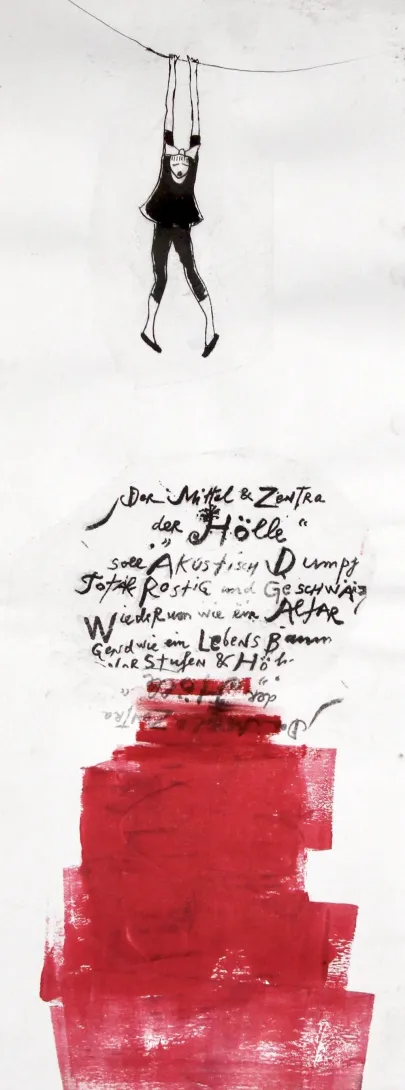 „Der Mittel & Zentra
der Hölle“
„soll Akustisch Dumpf
Total Rostig und Geschwärz
Wiederum wie ein Altar
wie ein Lebens Baum
Stufen &
der Hölle
Zentra